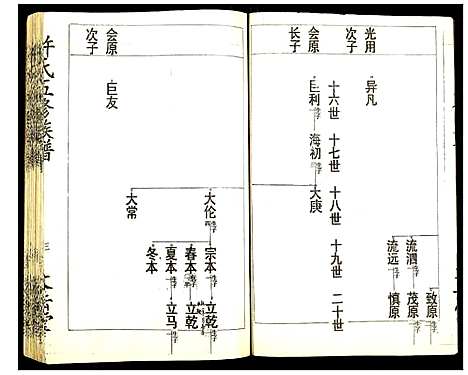 光用
次子
异凡
流泗
流远
致原
茂原
慎原
十六世 十七世 十八世 十九世 二十世
会原
长子
巨利
海初
大庚
会原
次子
巨友
大伦
大常
宗本
春本
夏本
冬本
立乾
立乾
立马
许氏五修族谱
三